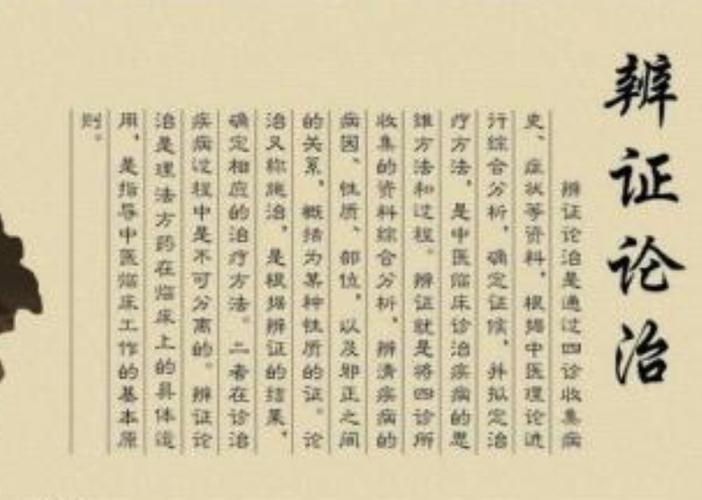 辨证论治
辨证论治是通过四诊收集病
史、症状等资料，根据中医理论进
行综合分析，确定证候，并拟定治
疗方法，是中医临床诊治疾病的思
维方法和过程。辨证就是将四诊所
收集的资料综合分析，辨清疾病的
病因、性质、部位，以及邪正之间
的关系，概括为某种性质的证。论
治又称施治，是根据辨证的结果，
确定相应的治疗方法。二者在诊治
疾病过程中是不可分离的。辨证论
治是理法方药在临床上的具体运
用，是指导中医临床工作的基本原
则。